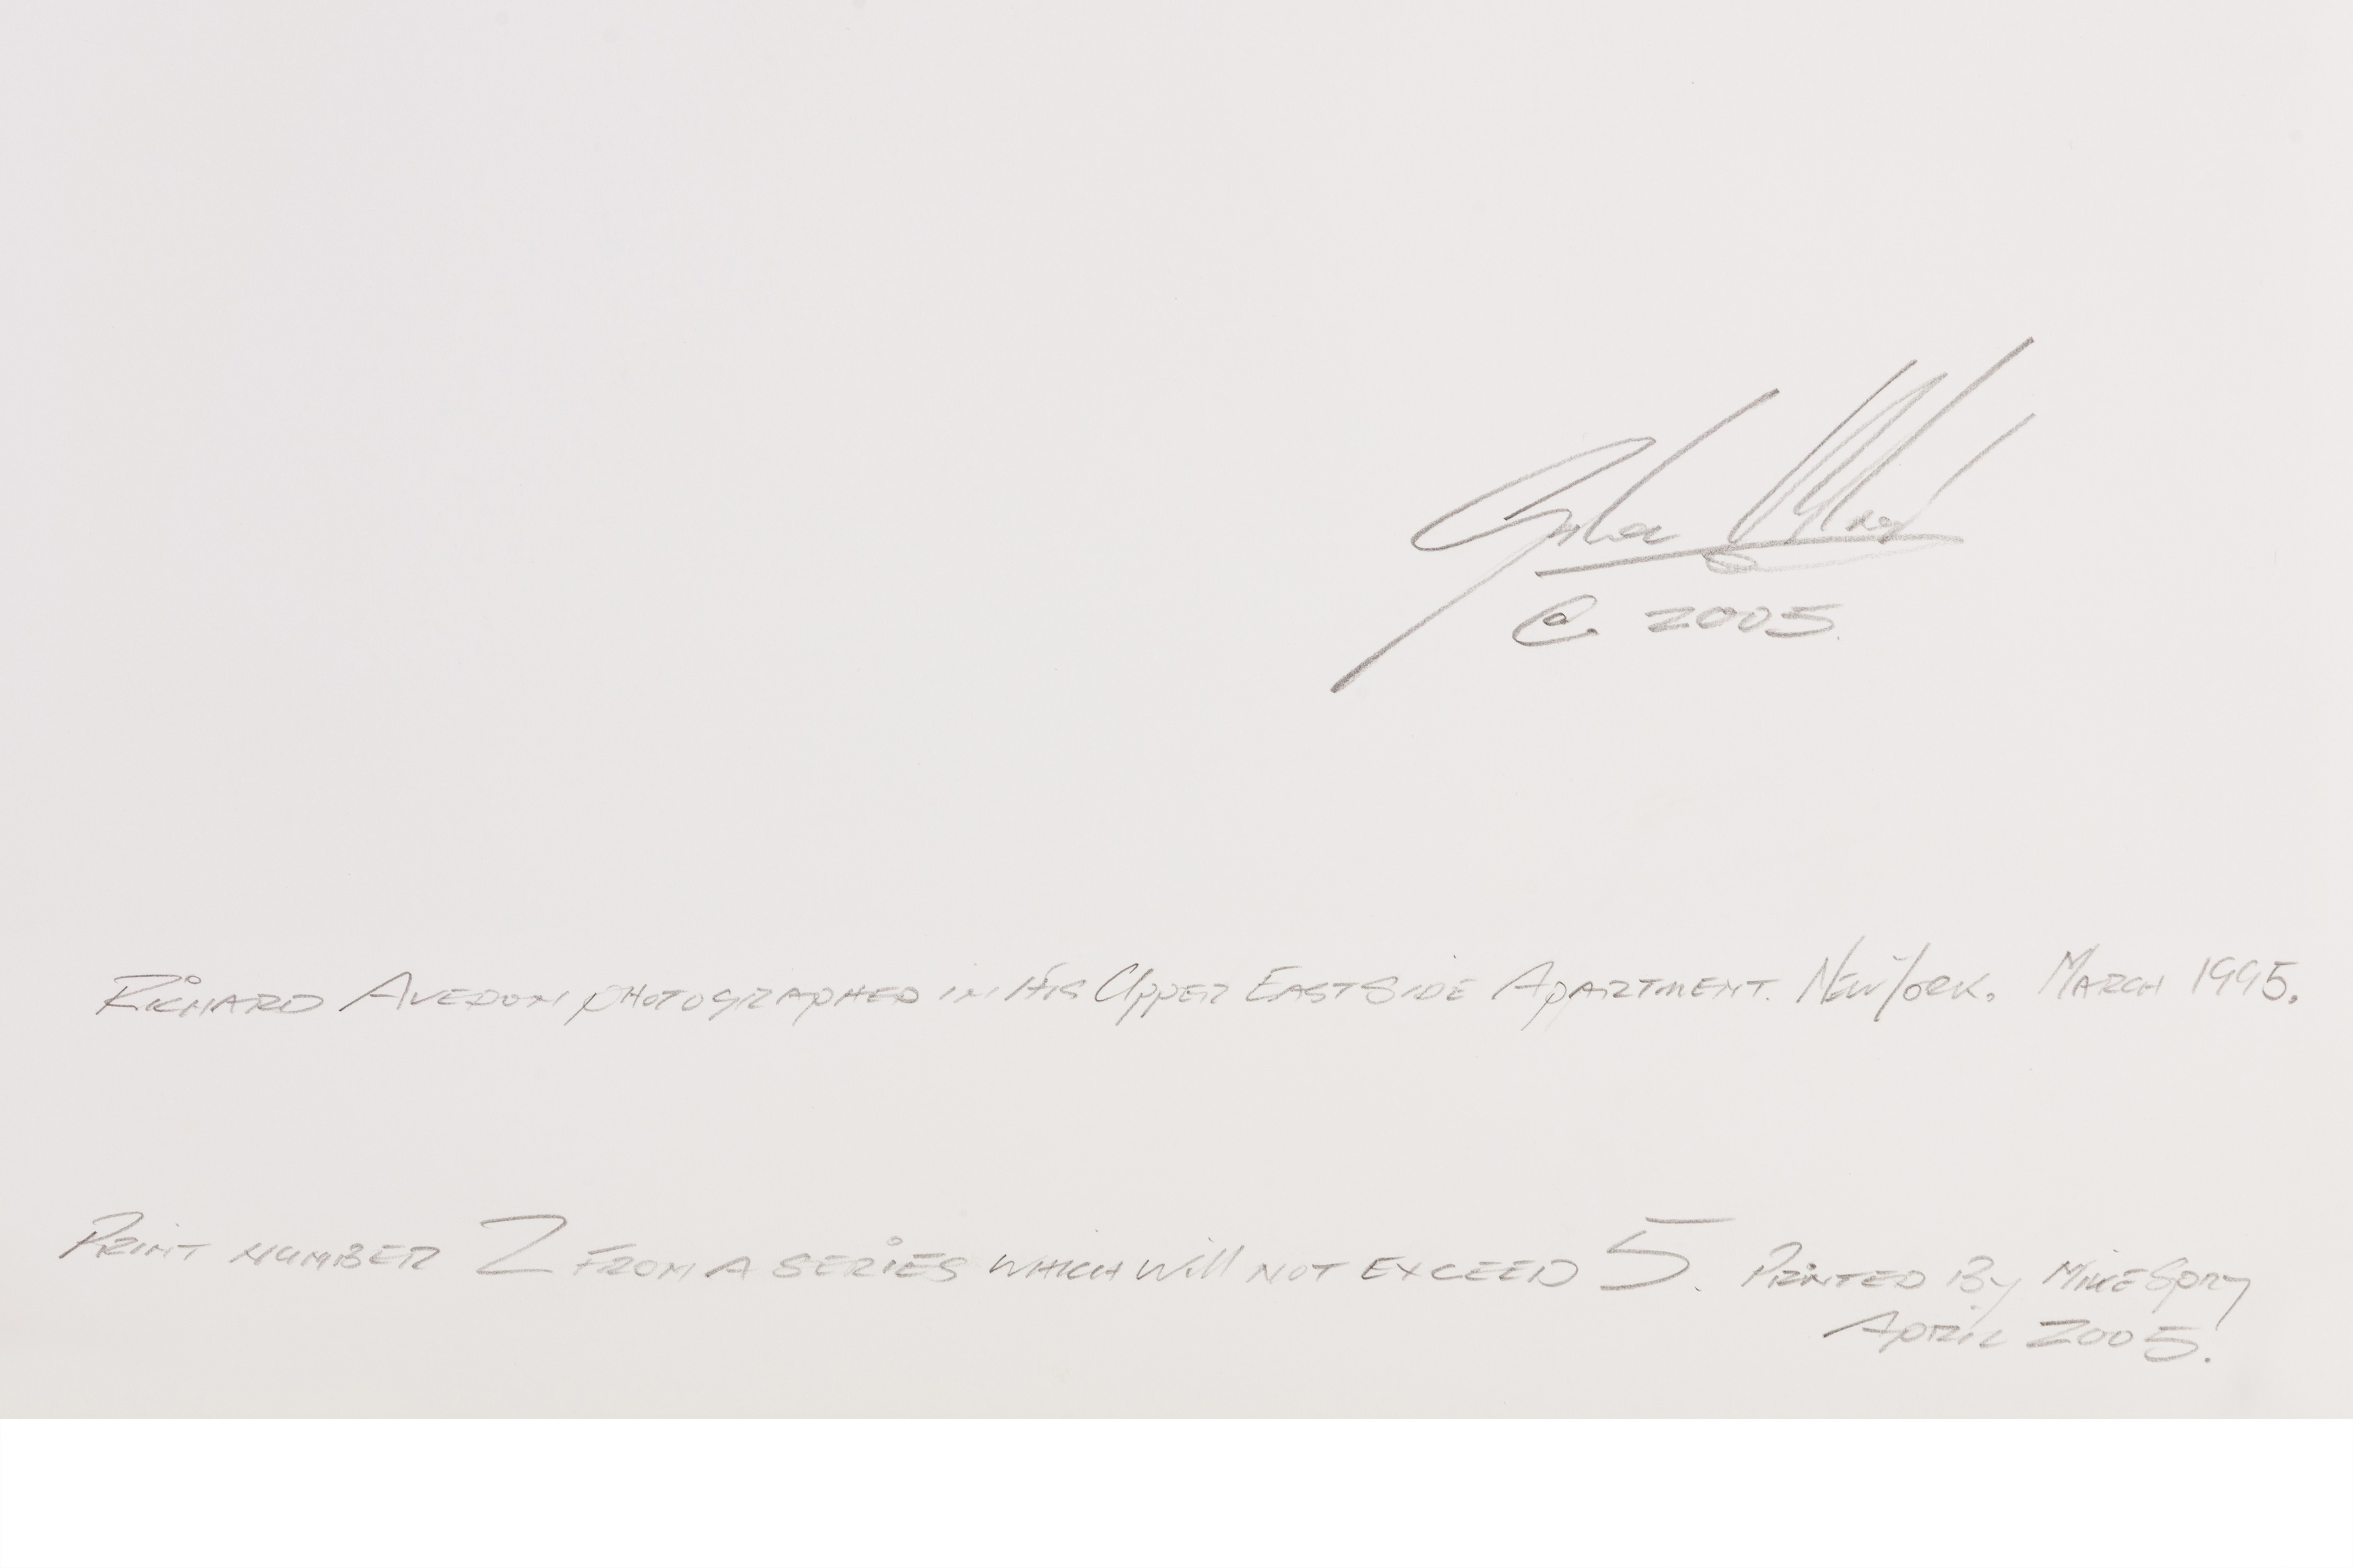 © 2005.
Richard Avedon photographed in His Upper East Side Apartment. New York. March 1995.
Print number 2 from a series which will not exceed 5. Printed By Mike Spry
April 2005.